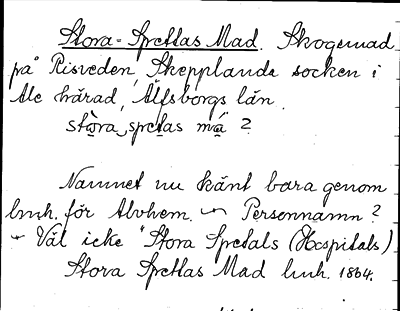 Stora-Spretlas Mad. Skogsmad
på Risveden, Skepplanda socken i
Ale härad, Älfsborgs län.
stòra spretas má ?
Namnet nu känt bara genom
lmh. för Alvhem. ~ Personnamn?
~ Väl icke *Stora Spetals (Hospitals)
Stora Spretlas Mad lmh. 1864.